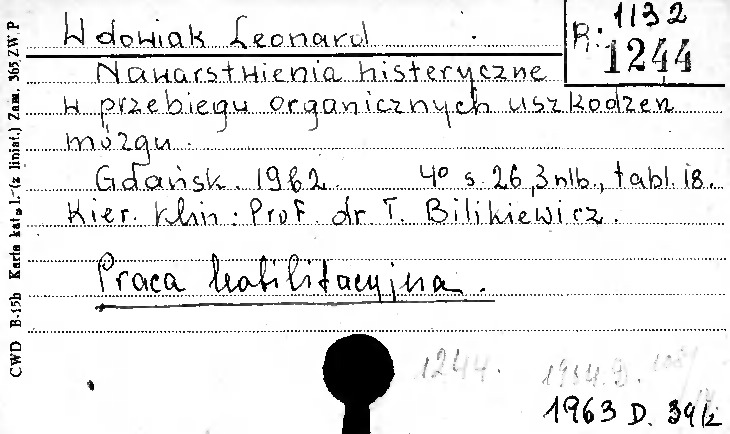 R: 1132
1244
Wdowiak Leonard
Nawarstwienia histeryczne
w przebiegu organicznych uszkodzeń
mózgu.
Gdańsk. 1962. 4° s. 26, 3 nlb., tabl. 18.
Kier. Klin: Prof. dr. T. Bilikiewicz.
Praca habilitacyjna.
1244.
1963 D. 39/2
CWD B-15b Karta kat. 1. (z liniat.) Zam. 365 ZWP